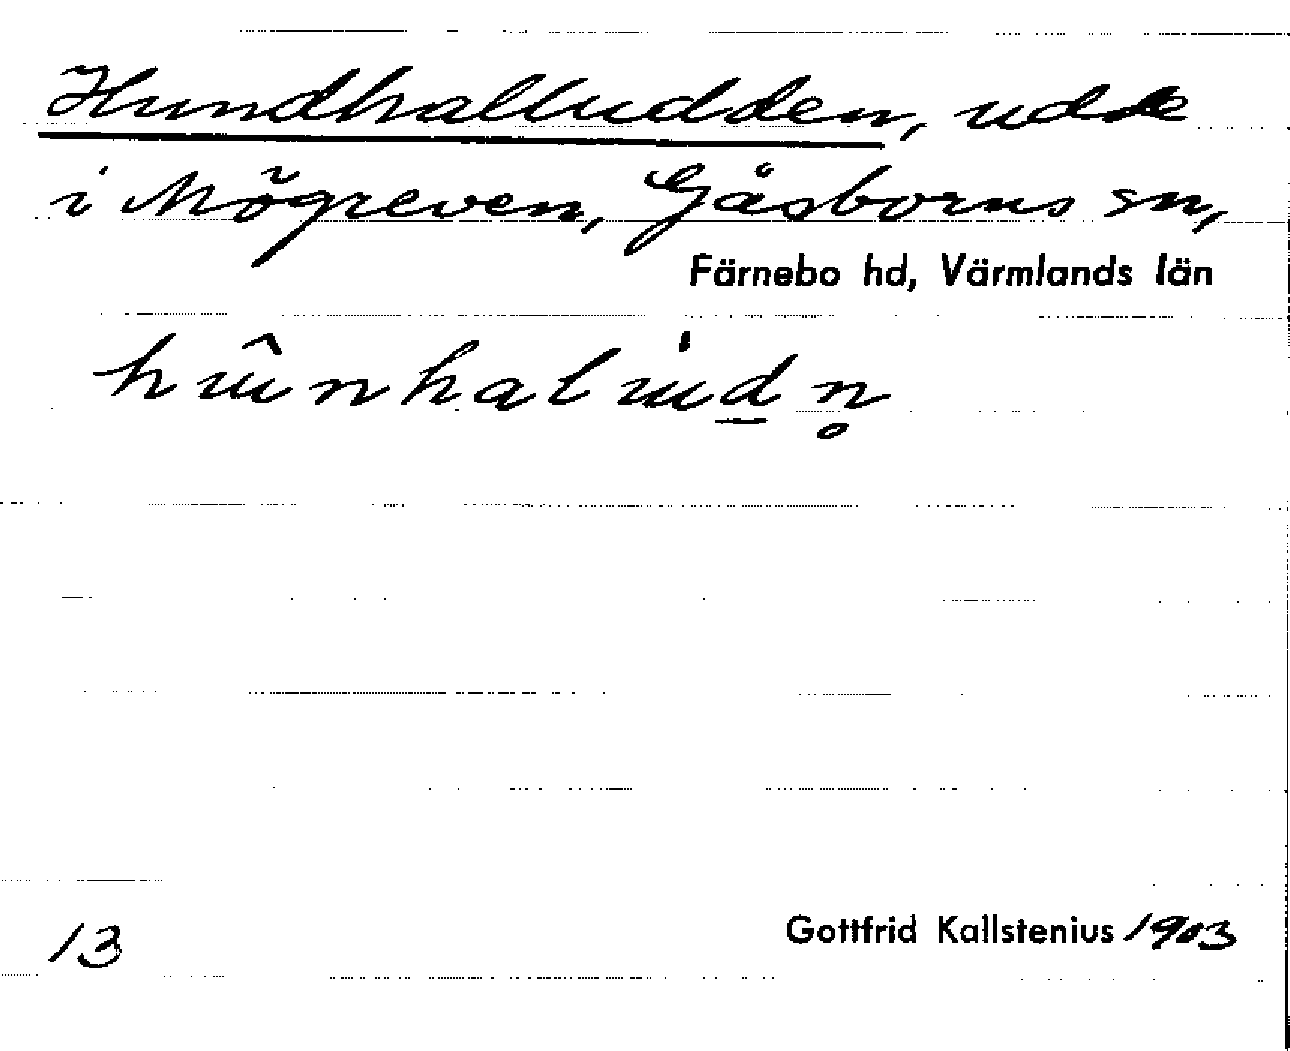 Hundhalludden, udde
i Mögreven, Gåsborns sn,
Färnebo hd, Värmlands län
13
Gottfrid Kallstenius 1903